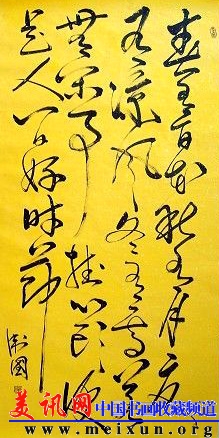 春有百花秋有月夏
有涼風冬有雪若
無閑事挂心頭便
是人间好时节
美讯网 中国书画收藏频道
www.meixun.org